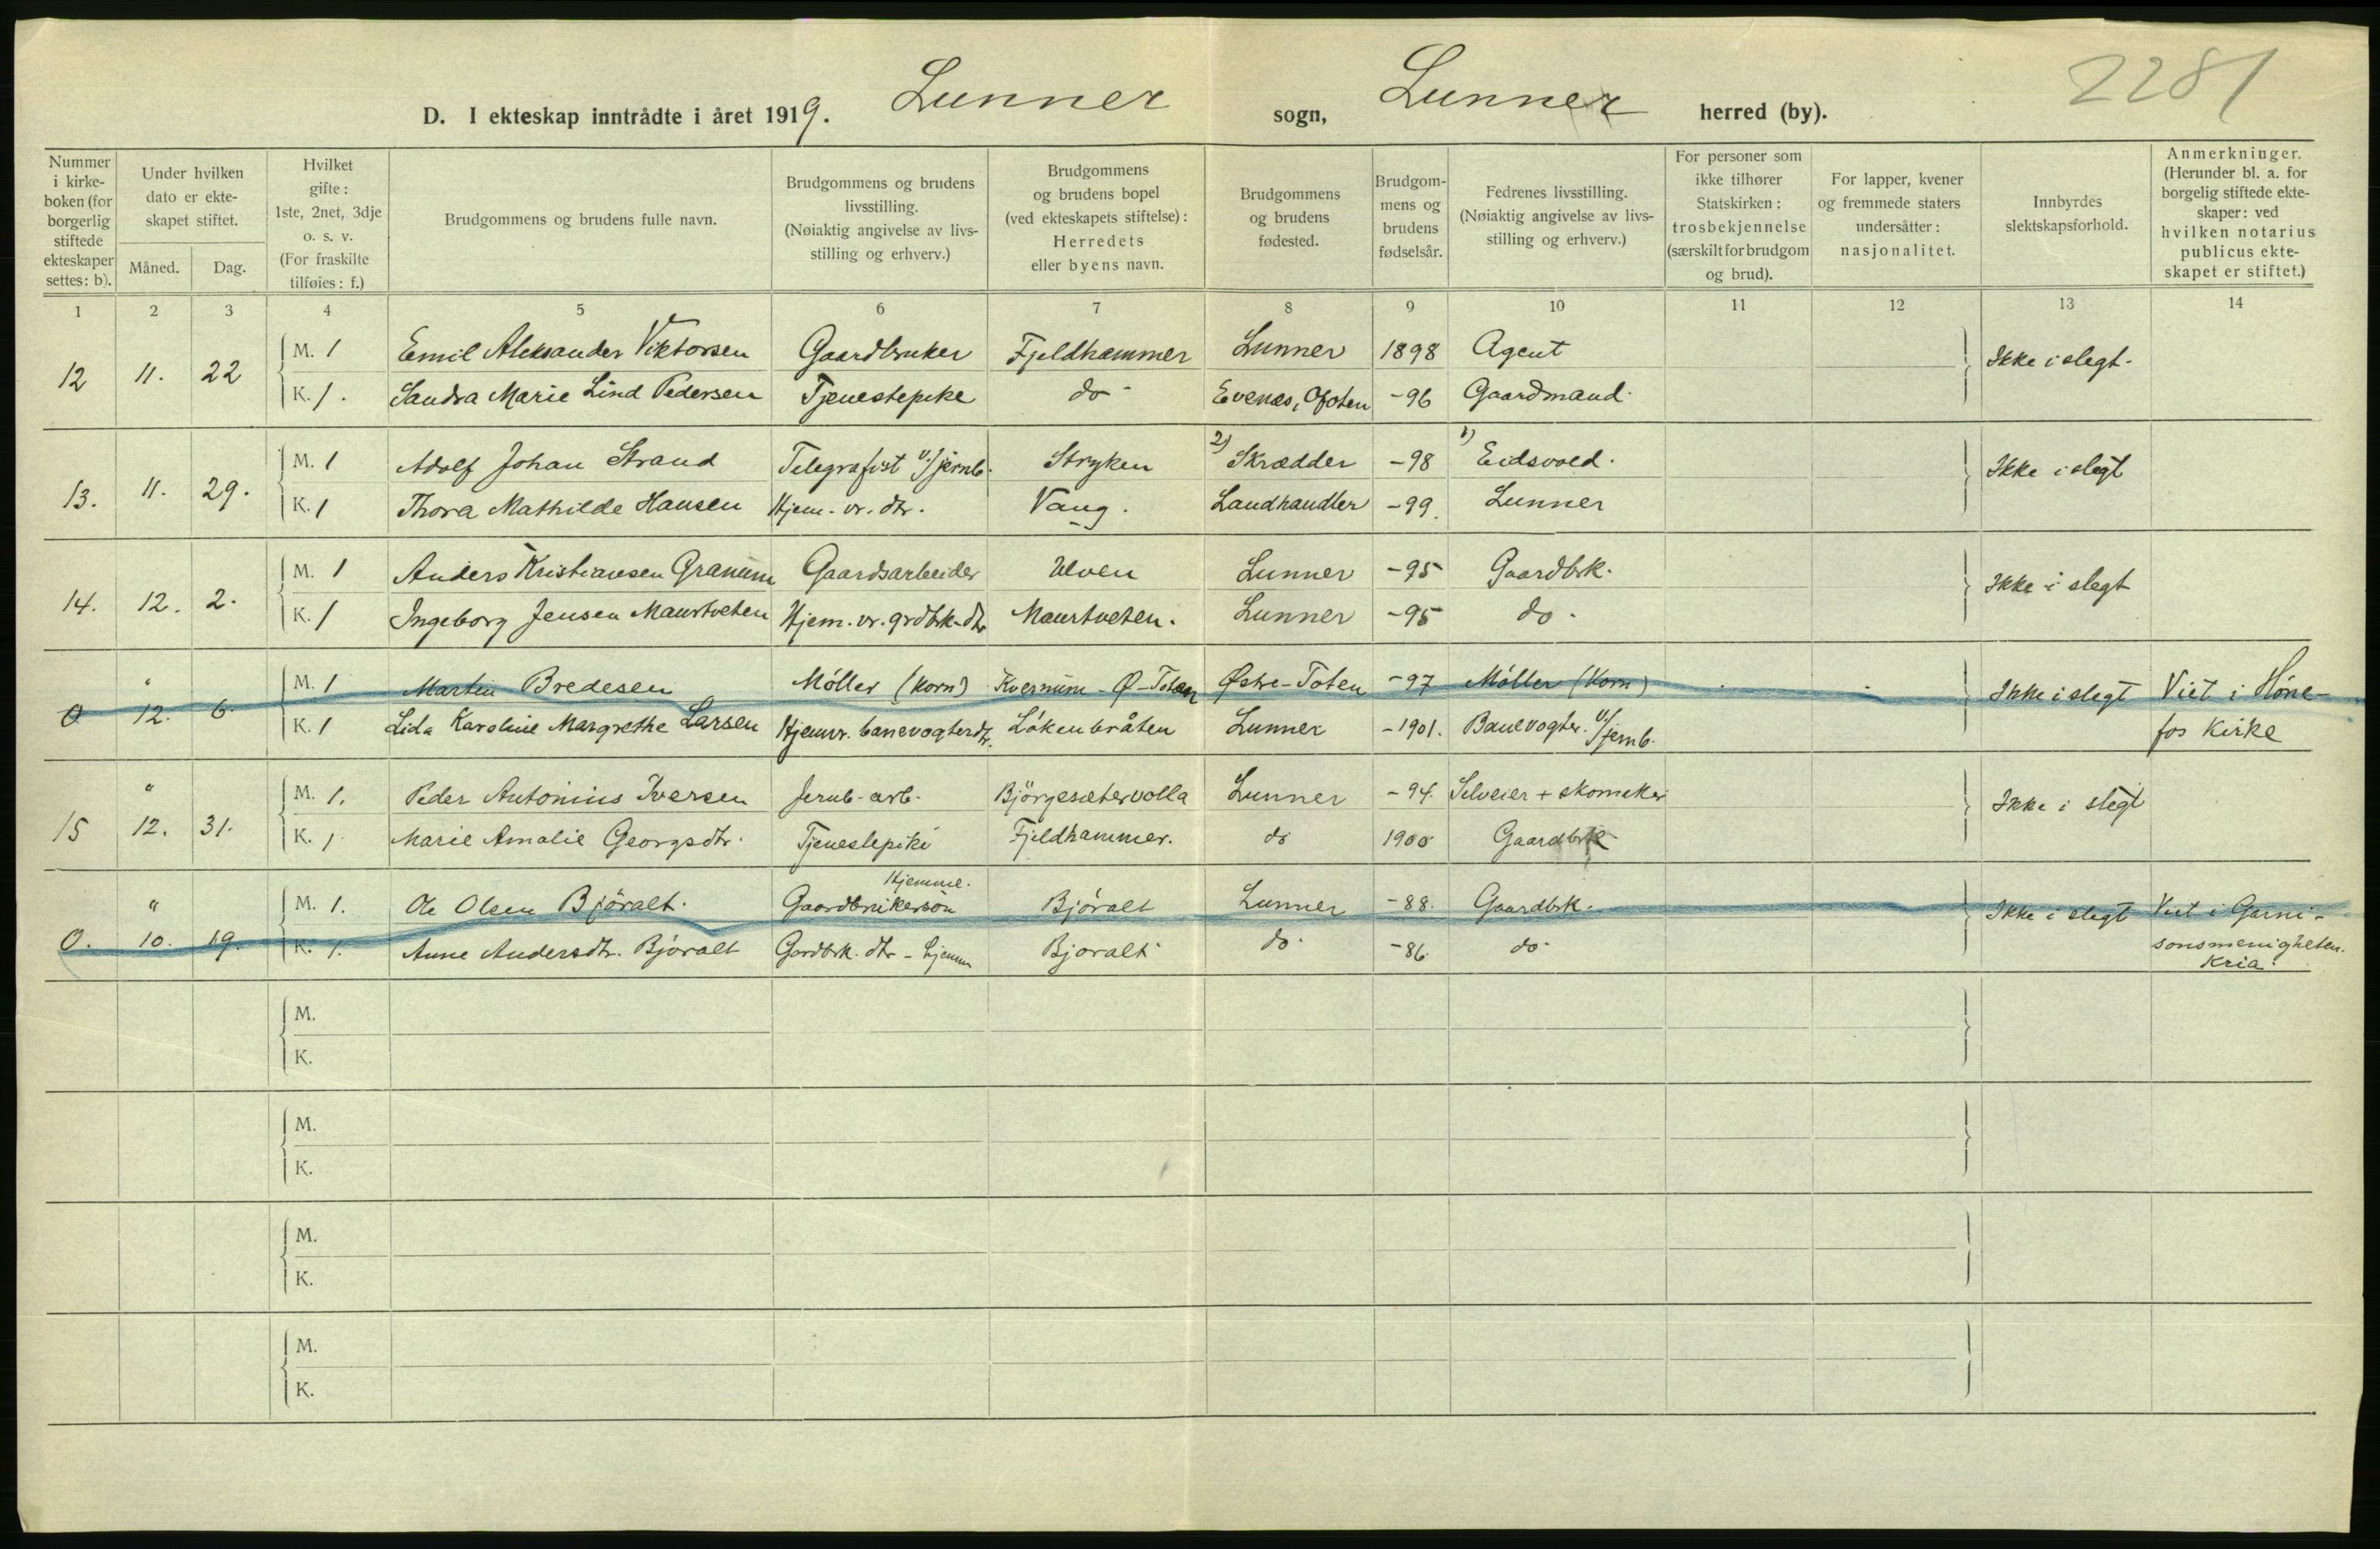 2281
D. I ekteskap inntrådte i året 1919. Lunner sogn, Lunner herred (by).
Nummer i kirke- boken (for borgerlig stiftede ekteskaper settes: b).
Under hvilken dato er ekte- skapet stiftet.
Måned. Dag.
Hvilket gifte: 1ste, 2net, 3dje o. s. v. (For fraskilte tilføies: f.)
Brudgommens og brudens fulle navn.
Brudgommens og brudens livsstilling. (Nøiaktig angivelse av livs- stilling og erhverv.)
Brudgommens og brudens bopel (ved ekteskapets stiftelse): Herredets eller byens navn.
Brudgommens og brudens fødested.
Brudgom- mens og brudens fødselsår.
Fedrenes livsstilling. (Nøiaktig angivelse av livs- stilling og erhverv.)
For personer som ikke tilhører Statskirken: trosbekjennelse (særskilt for brudgom og brud).
For lapper, kvener og fremmede staters undersåtter: nasjonalitet.
Innbyrdes slektskapsforhold.
Anmerkninger. (Herunder bl. a. for borgelig stiftede ekte- skaper: ved hvilken notarius publicus ekte- skapet er stiftet.)
1 2 3 4 5 6 7 8 9 10 11 12 13 14
12 11. 22 M. 1 Emil Aleksander Viktorsen Gaardbruker Fjeldhammer Lunner 1898 Agent Ikke i slegt.
K. 1. Sandra Marie Lind Pedersen Tjenestepike do Evenæs, Ofoten -96 Gaardmand.
13. 11. 29. M. 1 Adolf Johan Strand Telegrafist v./jernb. Stryken 2) Skrædder -98 1) Eidsvold. Ikke i slegt
K. 1 Thora Mathilde Hansen Hjem. vr. dtr. Vang. Landhandler -99. Lunner
14. 12. 2. M. 1 Anders Kristiansen Granum Gaardsarbeider Ulven Lunner -95 Gaardbk. Ikke i slegt
K. 1 Ingeborg Jensen Maurtveten Hjem. vr. grdbk-dtr Maurtveten. Lunner -95 do.
0 " 12. 6. M. 1 Martin Bredesen Møller (Korn) Kvernum - Ø-Toten Østre-Toten -97 Møller (Korn) Ikke i slegt Viet i Høne-
K. 1 Lida Karoline Margrethe Larsen Hjemvr. banevogterdtr. Løkenbråten Lunner -1901. Banevogter. v./jernb. fos Kirke
15 " 12. 31. M. 1. Peder Antonius Iversen Jernb-arb. Bjørgesætervolla Lunner -94. Selveier + skomaker Ikke i slegt
K. 1 Marie Amalie Georgsdtr. Tjenestepike Fjeldhammer. do 1900 Gaardbrk
Hjemme.
0. " 10. 19. M. 1. Ole Olsen Bjøralt. Gaardbrukersøn Bjøralt Lunner -88. Gaardbk. Ikke i slegt Viet i Garni-
K. 1. Anne Andersdtr. Bjøralt Gardbrk. dtr - hjemm Bjøralt do. -86. do- sonsmenigheten.
Kria.
M.
K.
M.
K.
M.
K.
M.
K.